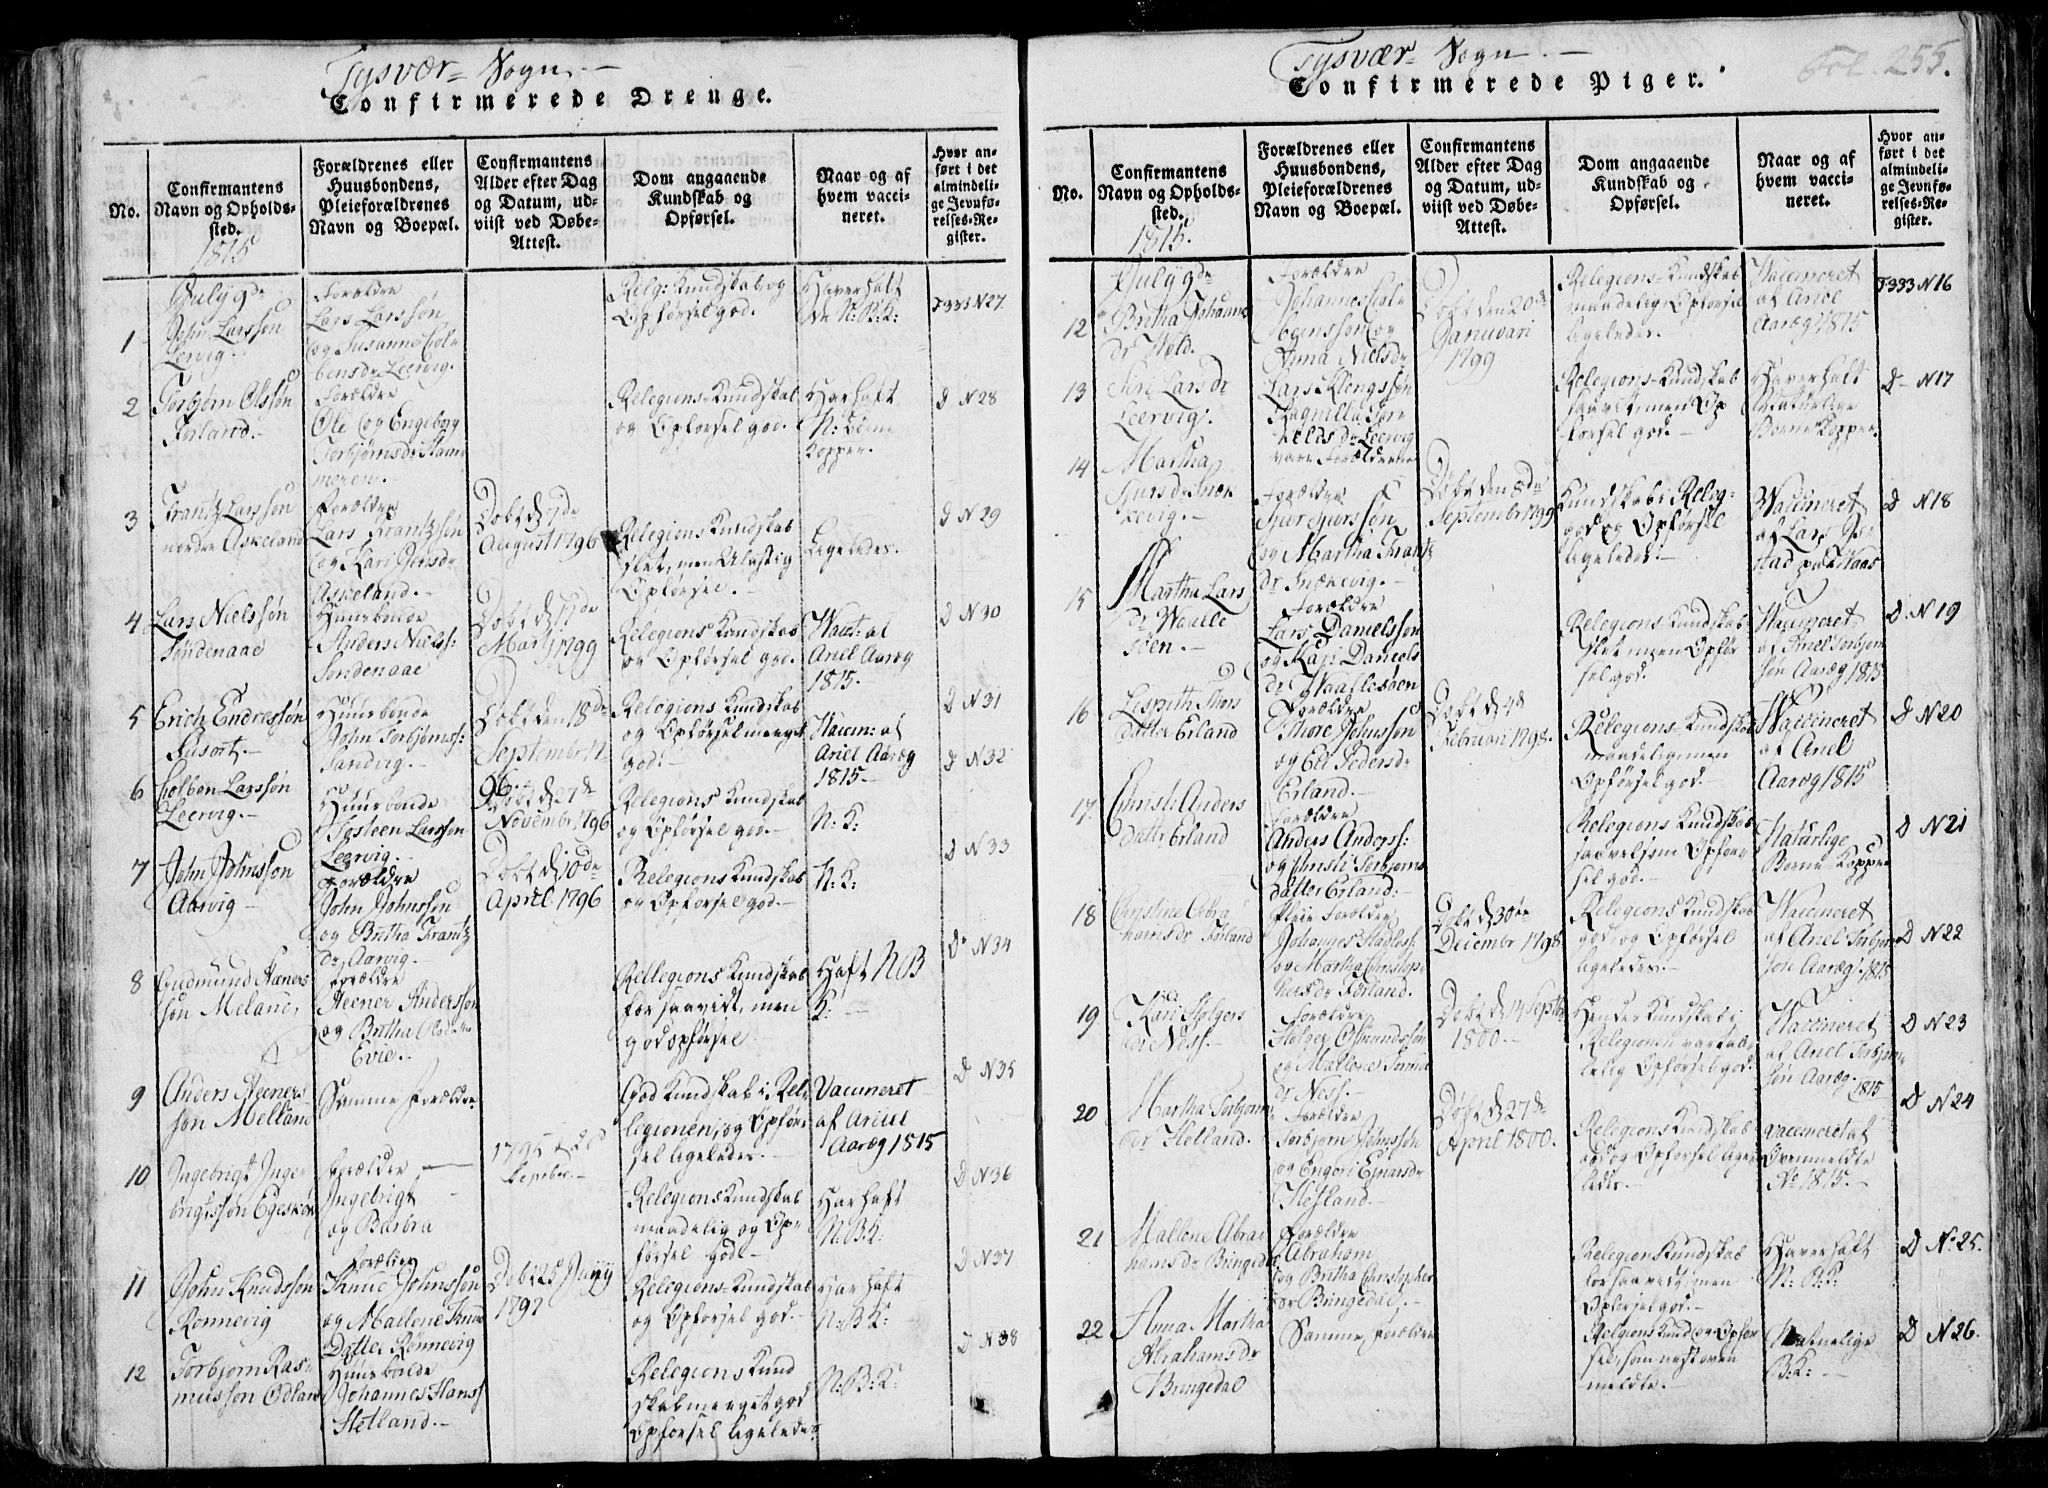 Tysvær Sogn.
Confirmerede Drenge.
No.
Confirmantens
Navn og Opholds-
sted.
Forældrenes eller
Huusbondens,
Pleieforældrenes
Navn og Boepæl.
Confirmantens
Alder efter Dag
og Datum, ud-
viist ved Døbe-
Attest.
Dom angaaende
Kundskab og
Opførsel.
Naar og af
hvem vacci-
neret.
Hvor an-
ført i det
almindeli-
ge Jevnfø-
relses-Re-
gister.
1815
July 9de
1
John Larssøn
Leervig.
Forældre
Lars Larssøn
og Susanne Col-
bensdr Leervig.
Relg: Kundskab og
Opførsel god.
Haver haft
de N: B: K:
F 335 N 27
2
Torbjørn Olssøn
Førland.
Forældre
Ole og Engeborg
Torbjørnsdr Ham
meren.
Relegions Kundskab
og Opførsel god.
Har haft
N: Børne
Kopper.
D N 28
3
Frantz Larssøn
nordre Askeland
Forældre
Lars Frantzsen
og Kari
Askeland.
Døbt d 7de
August 1796
Relegions Kundskab
slet, men
Opførsel.
Ligeledes.
D N 29
4
Lars Nielssøn
Søndenaae
Huusbonde
Anders Nielss:
Søndenaae
Døbt d 17de
Martj 1799
Relegions Kundskab
og Opførsel god.
Vacc: af
Ariel Aaræg
1815.
D N 30
5
Erich Endressøn
Huusbonde
John Torbjørnss:
Sandvig.
Døbt den 18de
Septembr 17
96
Relegions Kundskab
og Opførsel meeget
god.
Vaccin: af
Ariel Aaræg
1815.
D N 31
6
Colben Larssøn
Leervig.
Huusbonde
Tosteen Larssøn
Leervig.
Døbt d 27de
Novembr 1796
Relegions Kundskab
og Opførsel god.
N: K:
D N 32
7
John Johnssøn
Aarvig
Forældre
John Johnssøn
og Britha Frantz
dr Aarvig.
Døbt d 10de
April 1796
Relegions Kundskab
og Opførsel god.
N: K:
D N 33
8
Gudmund Heeners
søn Meland,
Forældre
Heener Anderssøn
og Britha
Evie.
Relegions Kundskab
forsaavidt, men
god opførsel
Haft N B
K:
D N 34
9
Anders Heeners
søn Melland
Samme Forældre
God Kundskab i Rel-
legionen, og Opfør
sel ligeledes.
Vaccineret
af Ariel
Aaræg 1815
D N 35
10
Ingebrigt Inge-
brigtssøn Egeskov
Forældre
Ingebrigt
og Barbra
1795 d 2d
Relegions Kundskab
maadelig og Op-
førsel god.
Har haft
N: B: K:
D N 36
11
John Knudssøn
Rønnevig
Forældre
Knud Johnssøn
og Mallene Knud
Datter Rønnevig
Døbt 25 Juny
1797
Relegions Kundskab
og Opførsel god.
Har haft
N: B: K:
D N 37
12
Torbjørn Ras-
mussøn Odland
Huusbonde
Johannes Hanss
Hetland.
Relegions Kund
skab meeget god
Opførsel ligeledes
N: B: K:
D N 38
Tysvær Sogn.
Confirmerede Piger.
Fol. 255.
No.
Confirmantens
Navn og Opholds-
sted.
Forældrenes eller
Huusbondens,
Pleieforældrenes
Navn og Boepæl.
Confirmantens
Alder efter Dag
og Datum, ud-
viist ved Døbe-
Attest.
Dom angaaende
Kundskab og
Opførsel.
Naar og af
hvem vacci-
neret.
Hvor an-
ført i det
almindeli-
ge Jevnfø-
relses-Re-
gister.
1815.
July 9de
12
Britha Johannes
dr Hold.
Forældre
Johannes Col-
beinssøn og
Anna Nielsdr
Døbt den 20de
Januari
1799
Relegions Kundskab
maadelig Opførsel
ligeledes.
Vaccineret
af Ariel
Aaræg 1815
F 333 N 16
13
Siri Larsdr
Leervig.
Lars Klengssøn
Ragnilde Tor
kelds dr Leervig
vare Forældrene
Relegions Kundskab
men Op
førsel god.
Haver haft
Naturlige
Børne Kopper.
D N 17
14
Martha
Sjursdr Snør
tevig.
Forældre
Sjur Sjurssøn
og Martha Frantz
dr Snørtevig.
Døbt den 8de
Septembr 1799
Kundskab i Relig:
god og Opførsel
ligeledes.
Vaccineret
af Lars
D N 18
15
Martha Lars
dr Waale
søen.
Forældre
Lars Danielssøn
og Kari Daniels
dr Waalesøen
Relegions Kundskab
slet men Opfør
sel god.
Vaccineret
af Ariel Torbjørn
søn Aaræg 1815
D N 19
16
Lisbeth Thors
datter Erland
Forældre
Thore Johnssøn
og Eli Pedersdr
Erland.
Døbt d 4de
Februari 1798.
Relegions Kundskab
maadelig men
Opførsel god.
Vaccineret
af Ariel
Aaræg 1815
D N 20
17
Christi Anders
datter Erland
Forældre
Anders Anderss:
og Christi Torbjørns
datter Erland.
Relegions Kundskab
saavelsom Opfør
sel god.
Naturlige
Børne Kopper
D N 21
18
Christine Abra
hamsdr Førland
Pleie Forældre
Johannes
og Martha Christop
hersdr Førland.
Døbt d 30te
Decembr 1798
Relegions Kundskab
god, og Opførsel
ligeledes.
Vaccineret
af Ariel Torbjørn
søn Aaræg. 1815
D N 22
19
Kari Holgers
dr Ness.
Forældre
Holger Osmundssøn
og Mallene
dr Ness.
Døbt d 14 Septbr
1800.
Hendes Kundskab i
Relegionen var taa-
lelig Opførsel god.
Vaccineret
af Ariel Torbjørn-
søn Aaræg. 1815
D N 23
20
Martha Torbjørns
dr Hetland.
Forældre
Torbjørn Johnssøn
og Engeri Ejnarsdr
Hetland.
Døbt d 27de
April 1800.
Relegions Kundskab
god og Opførsel lige
ledes.
Vaccineret af
Ovenmeldte
1815.
D N 24
21
Mallene Abra
hamsdr Bringedal
Forældre
Abraham
og Britha Christopher
dr Bringedal.
Relegions Kundskab
forsaavidt, men
Opførsel god.
Haver haft
N: B: K:
D N 25.
22
Anna Martha
Abrahamsdr
Bringedal
Samme Forældre
Relgions Kund og Opfør
sel, som næst oven
meldte.
Naturlige
B: K:
D N 26.